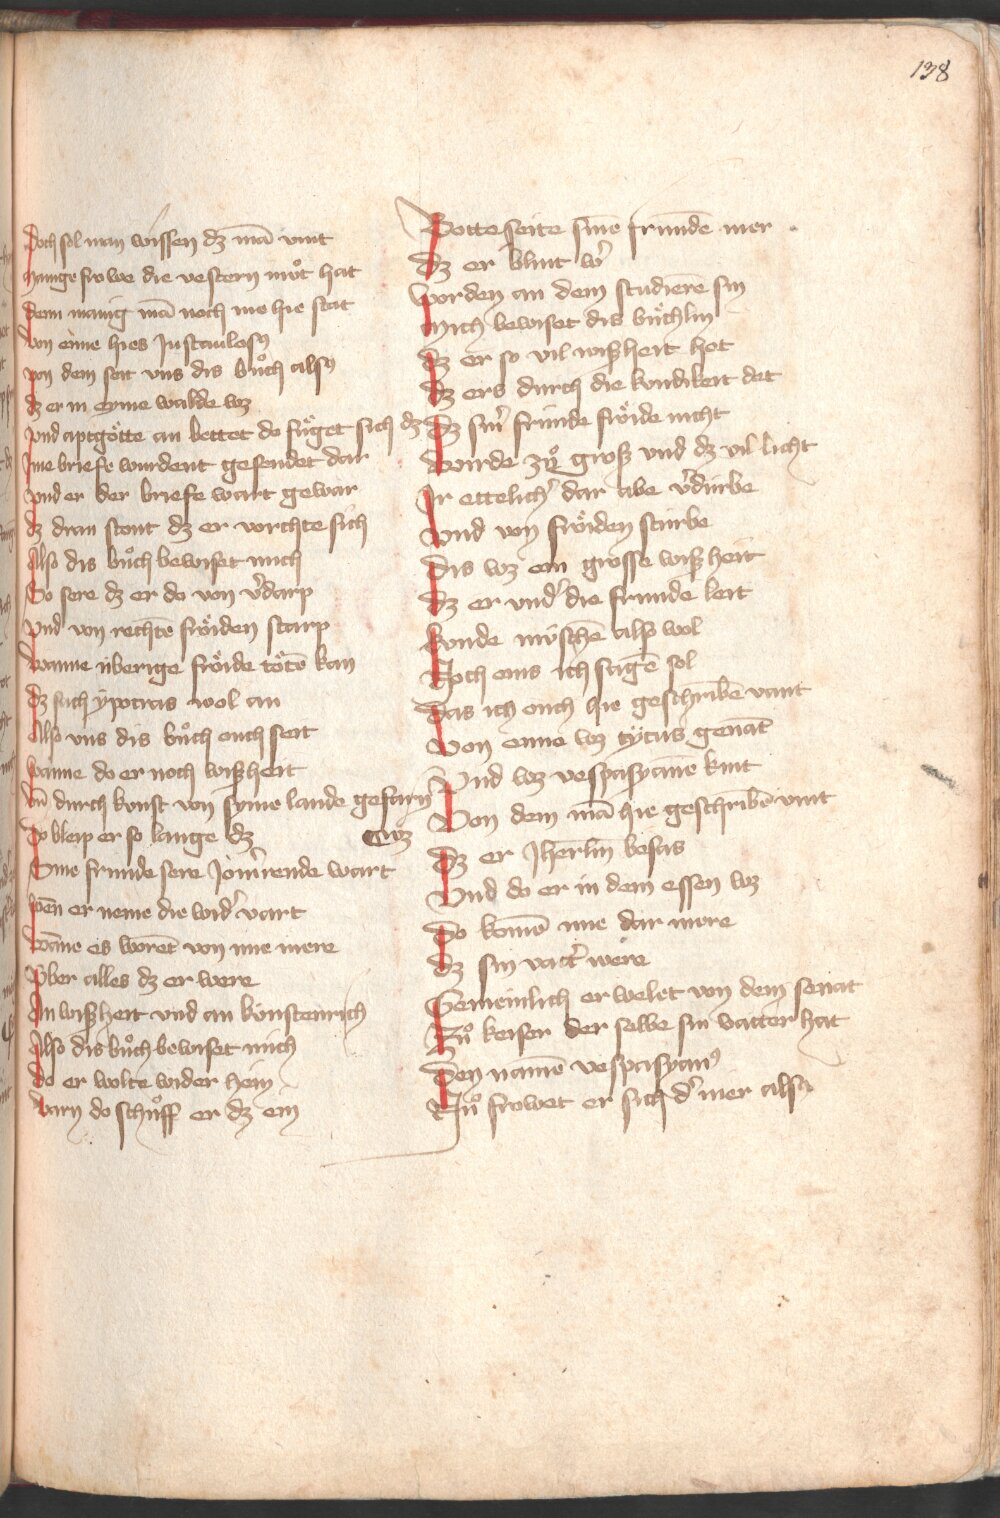 138
Doch sol man wissen dz mā vint
Manige frowe die vestern mͦt hat
Denn manig mā noch me hie stat
Von eime hies Justaulosy
von dem seit vns dis bůch alsy
dz er in eyme walde wz
vnd aptgötte an bettet do füget sich dz
Ime briefe wurdent gesendet dar
vnd er der briefe wart gewar
dz dran stont dz er vorchte sich
Also dis bůch bewiset mich
So sere dz er do von v'darp
vnd von rechtē fröiden starp
wanne überige fröide tötē kan
dz sach ypocras wol an
Also vns dis bůch ouch seit
wanne do er noch wißheit
vn̄ durch kunst von syme lande gefarn
Do bleip er so lange dz wz
Sine frunde sere Jom'rende wart
wēn er neme die wid' vart
wāne es worēt von ime mere
Vber alles dz er were
An wißheit vnd an künstenrich
Also dis bůch bewiset mich
do er wolte wider hein
varn do schůff er dz ein
Botte seite sinē frundē mer
Dz er blint w'
worden an dem studierē sin
Mich bewiset dis büchlin
Dz er so vil wißheit het
Dz ers durch die kundikeit det
Dz sin' frunde fröide nicht
wurde zů groß vnd dz vil licht
Ir ettelich' dar abe v'dürbe
vnd von fröiden stürbe
Dis wz ein grosse wißheit
Dz er vnd' die frunde leit
kunde müschē alß wol
Noch eins ich sagē sol
Das ich ouch hie geschribē vant
Von eime wz tytus genāt
Vnd wz vespasyanē kint
Von dem mā hie geschribē vint
Dz er Jherlm̄ besas
Vnd do er in dem essen wz
Do komē ime dar mere
Dz sin vatt' were
Gemeinlich erwelet von dem senat
Zů keiser der selbe sin vatter hat
Den namē vespasyan'
Nů frowet er sich d' mer alsa